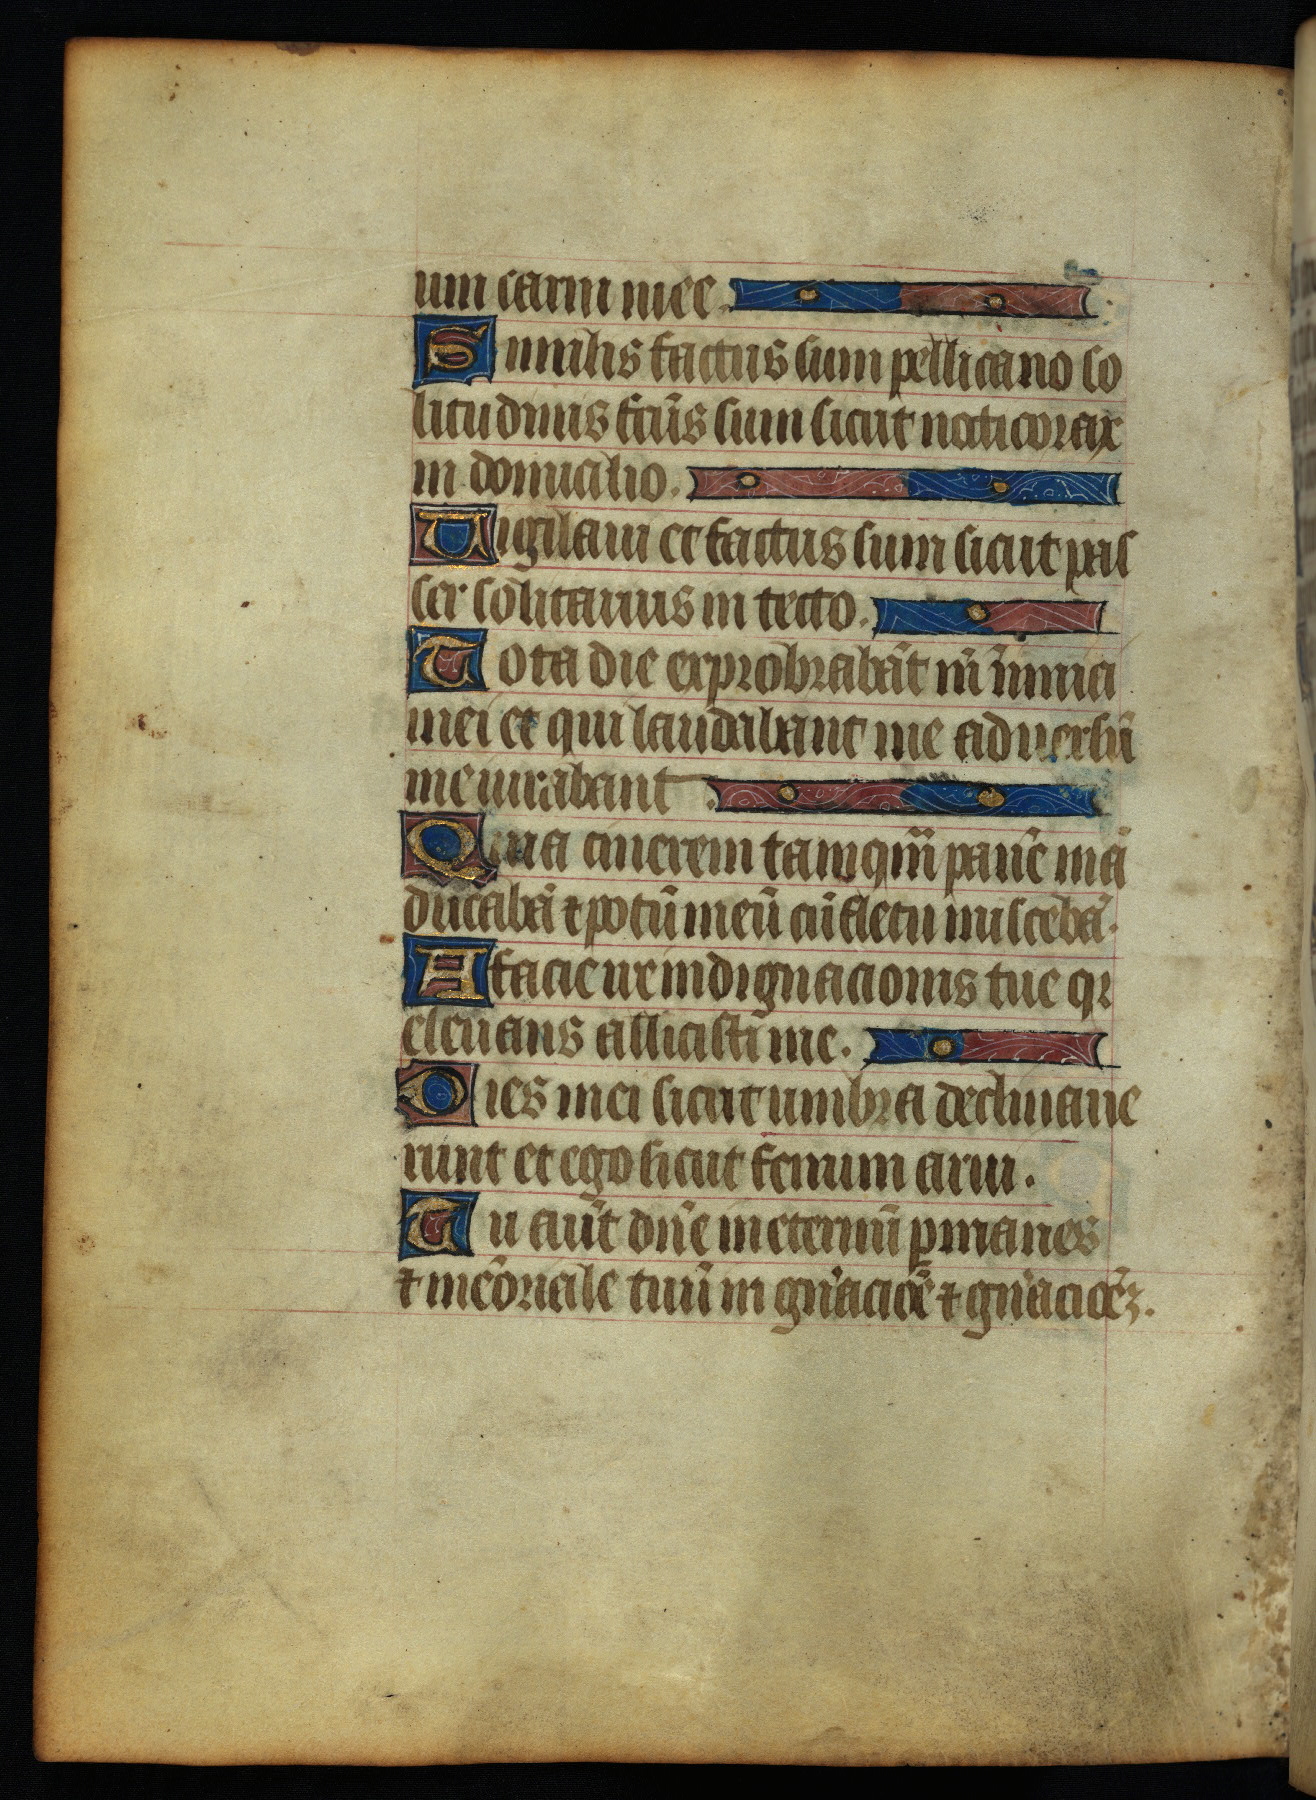 um carni mee.
Similis factus sum pellicano so
litudinis fc̃us sum sicut noticorax
in domicilio.
Uigilaui et factus sum sicut pas
ser solitarius in tecto.
Tota die exprobrabãt m̃ inimici
mei et qui laudabant me aduersũ
me iurabant.
Quia cinerem tamqm̃ panẽ mã
ducabã ⁊ potũ meũ cũ fletu miscebã.
A facie ire indignacionis tue qr
eleuans allicisti me.
Dies mei sicut umbra declinaue
runt et ego sicut fenum arui.
Tu aũt dñe in eternũ pmanes
⁊ mẽoriale tuũ in gñacioẽ ⁊ gñacioẽꝫ.